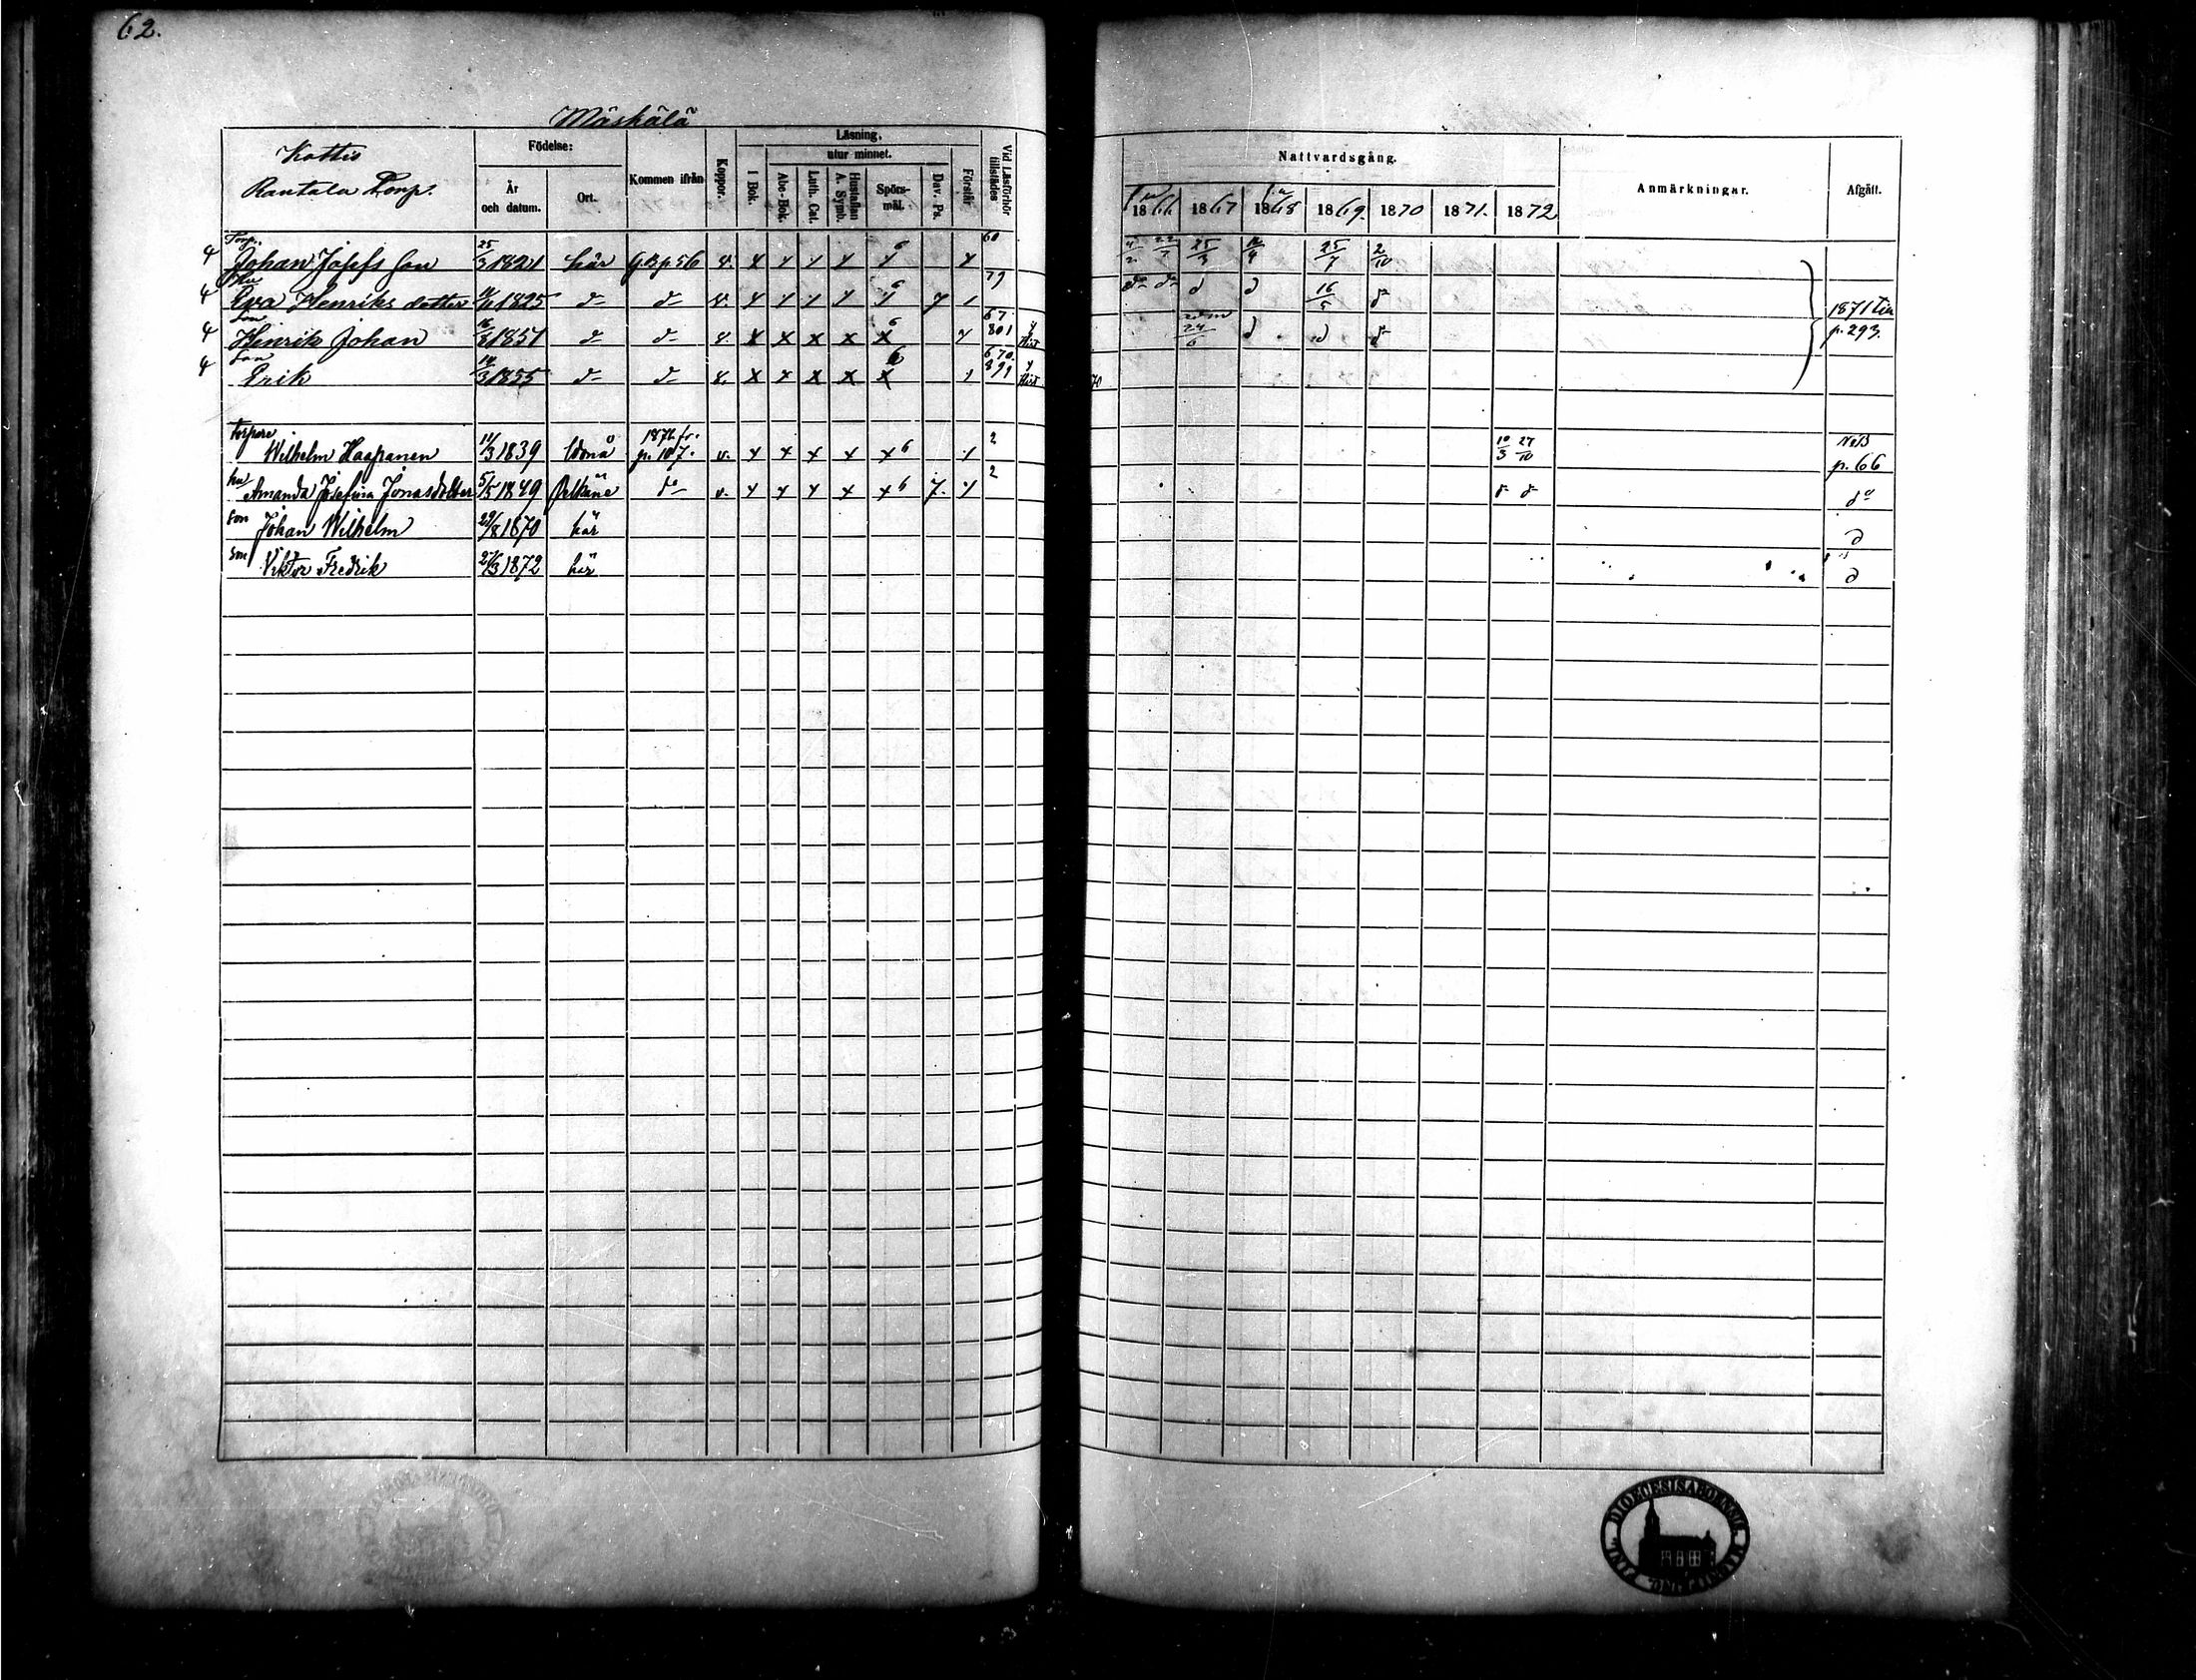 62.
Mäskälä
Kottis
Rantala Torp.
Födelse:
År och datum.
Ort.
Kommen ifrån
Koppor.
Läsning,
utur minnet.
I Bok.
Abc-Bok.
Luth. Cat.
Hustaflan A. Symb.
Spörs-mål.
Dav. Ps.
Förstår
Vid Läsförhör tillstädes
Nattvardsgång.
1866 1867 1868 1869. 1870 1871. 1872
Anmärkningar.
Afgått.
Torp.
Johan Josefs son 25/3 1821 här G.B.p 56 v. 60 25/3 25/7 2/10
Hu
Eva Henriks dotter 1825 d- d- v. 79 d d 16/5 d-
Son
Henrik Johan 16 1851 d- d- v. 67 801 24/6 d d d-
1871 till p. 293.
Son
Erik 14/3 1855 d- d- v. 670. 891
torpare
Wilhelm Haapanen 11/3 1839 1872 fr. p. 107. v. 6 2 10/3 27/10 NoB p. 66
hu
Amanda Josefina Jonasdotter 5/5 1849 Pelkäne do v. 6 7. 2 d- d- do
son Johan Wilhelm 29/8 1870 här d
son Viktor Fredrik 27/3 1872 här d
DIOECESIS ABOENSIS